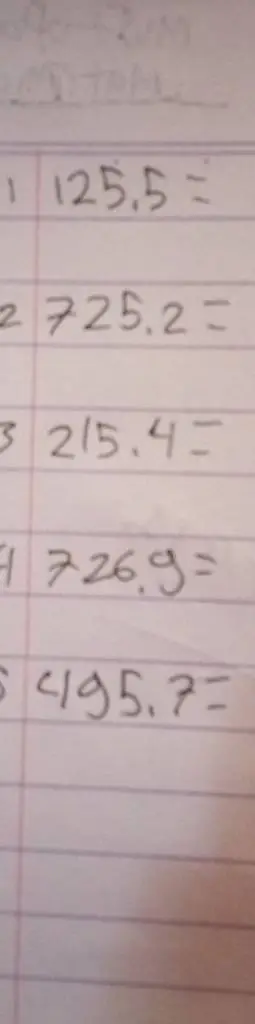 1 125.5=
2 725.2=
3 215.4=
4 726.9=
5 495.7=